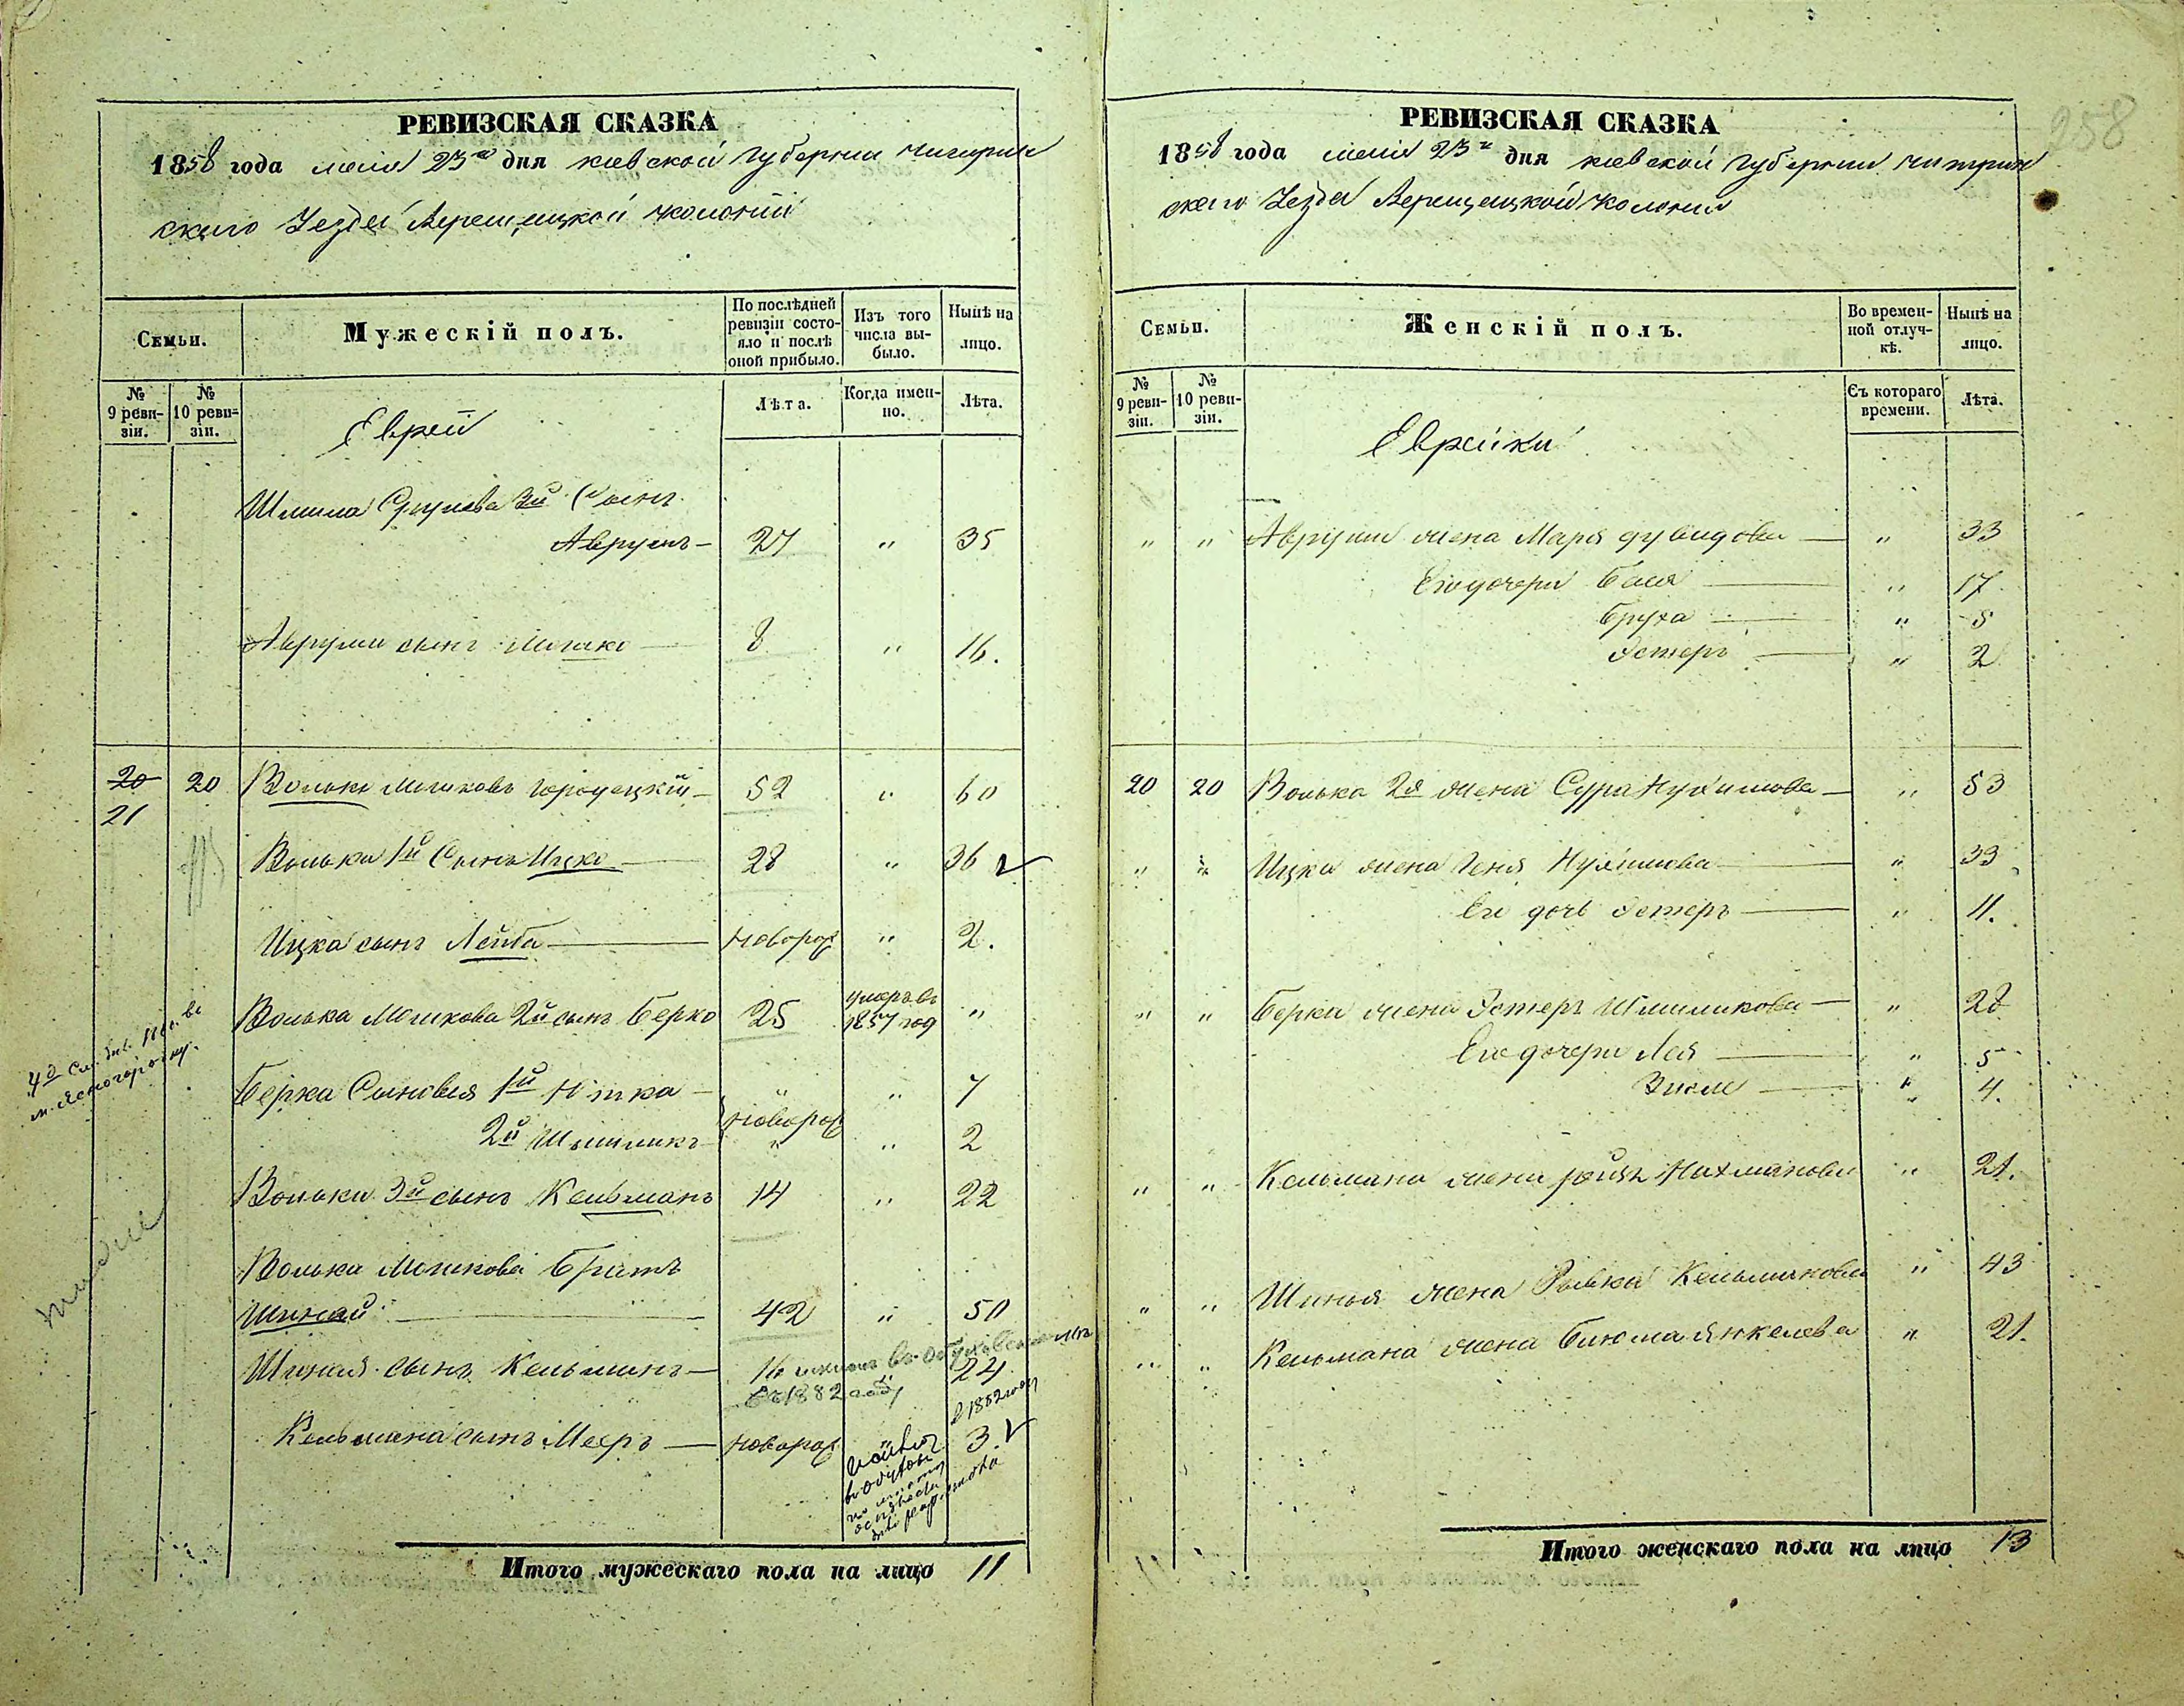 РЕВИЗСКАЯ СКАЗКА
1858 года мая 23го дня киевской губернии чигирин
скаго Уезда Верещацкой колонии
Семьи.
Мужескій полъ.
По послѣдней ревизіи состояло и послѣ оной прибыло.
Изъ того числа выбыло.
Нынѣ на лицо.
№ 9 ревизіи.
№ 10 ревизіи.
Еврей
Лѣта.
Когда именно.
Лѣта.
Шлима 3й Сынъ
Аврумъ — 27 " 35
Аврума сынъ Мошко — 8 " 16.
20 20 Волько Мошковъ Городецкій — 52 " 60
21
Волька 1й Сынъ Ицко — 28 " 36 ✓
Ицка сынъ Лейба — новорож " 2.
Волька Мошкова 2й сынъ Берко 25 умеръ въ 1857 год "
Берка Сыновья 1й — " " 7
новорож
2й Шлиликъ — " " 2
Волька 3й сынъ Кельманъ 14 " 22
Волька Мошкова братъ
Шинай — 42 " 50
Шиная сынъ Кельманъ — 16 24
1882
Кельмана сынъ Мееръ — новорож " 3. ✓
Итого мужескаго пола на лицо 11
258
РЕВИЗСКАЯ СКАЗКА
1858 года мая 23го дня киевской губернии чигирин
скаго Уезда Верещацкой колонии
Семьи.
Женскій полъ.
Во временной отлучкѣ.
Нынѣ на лицо.
№ 9 ревизіи.
№ 10 ревизіи.
Еврейки
Съ котораго времени.
Лѣта.
" " Аврума жена Маря дувидова — " 33
Его дочери Бася — " 17
Бруха — " 5
Эстеръ — " 2
20 20 Волька 2я жена Сура Нухимова — " 53
" " Ицка жена Геня Нухимова — " 33
Его дочь Эстеръ — " 11.
" " Берка жена Эстеръ Шлиликова — " 28
Его дочери Лея — " 5
— " 4.
" " Кельмана жена Нахманова " 21.
" " Шиная жена Рывка Кельманова " 43
" " Кельмана жена Блюма Янкелева " 21.
Итого женскаго пола на лицо 13